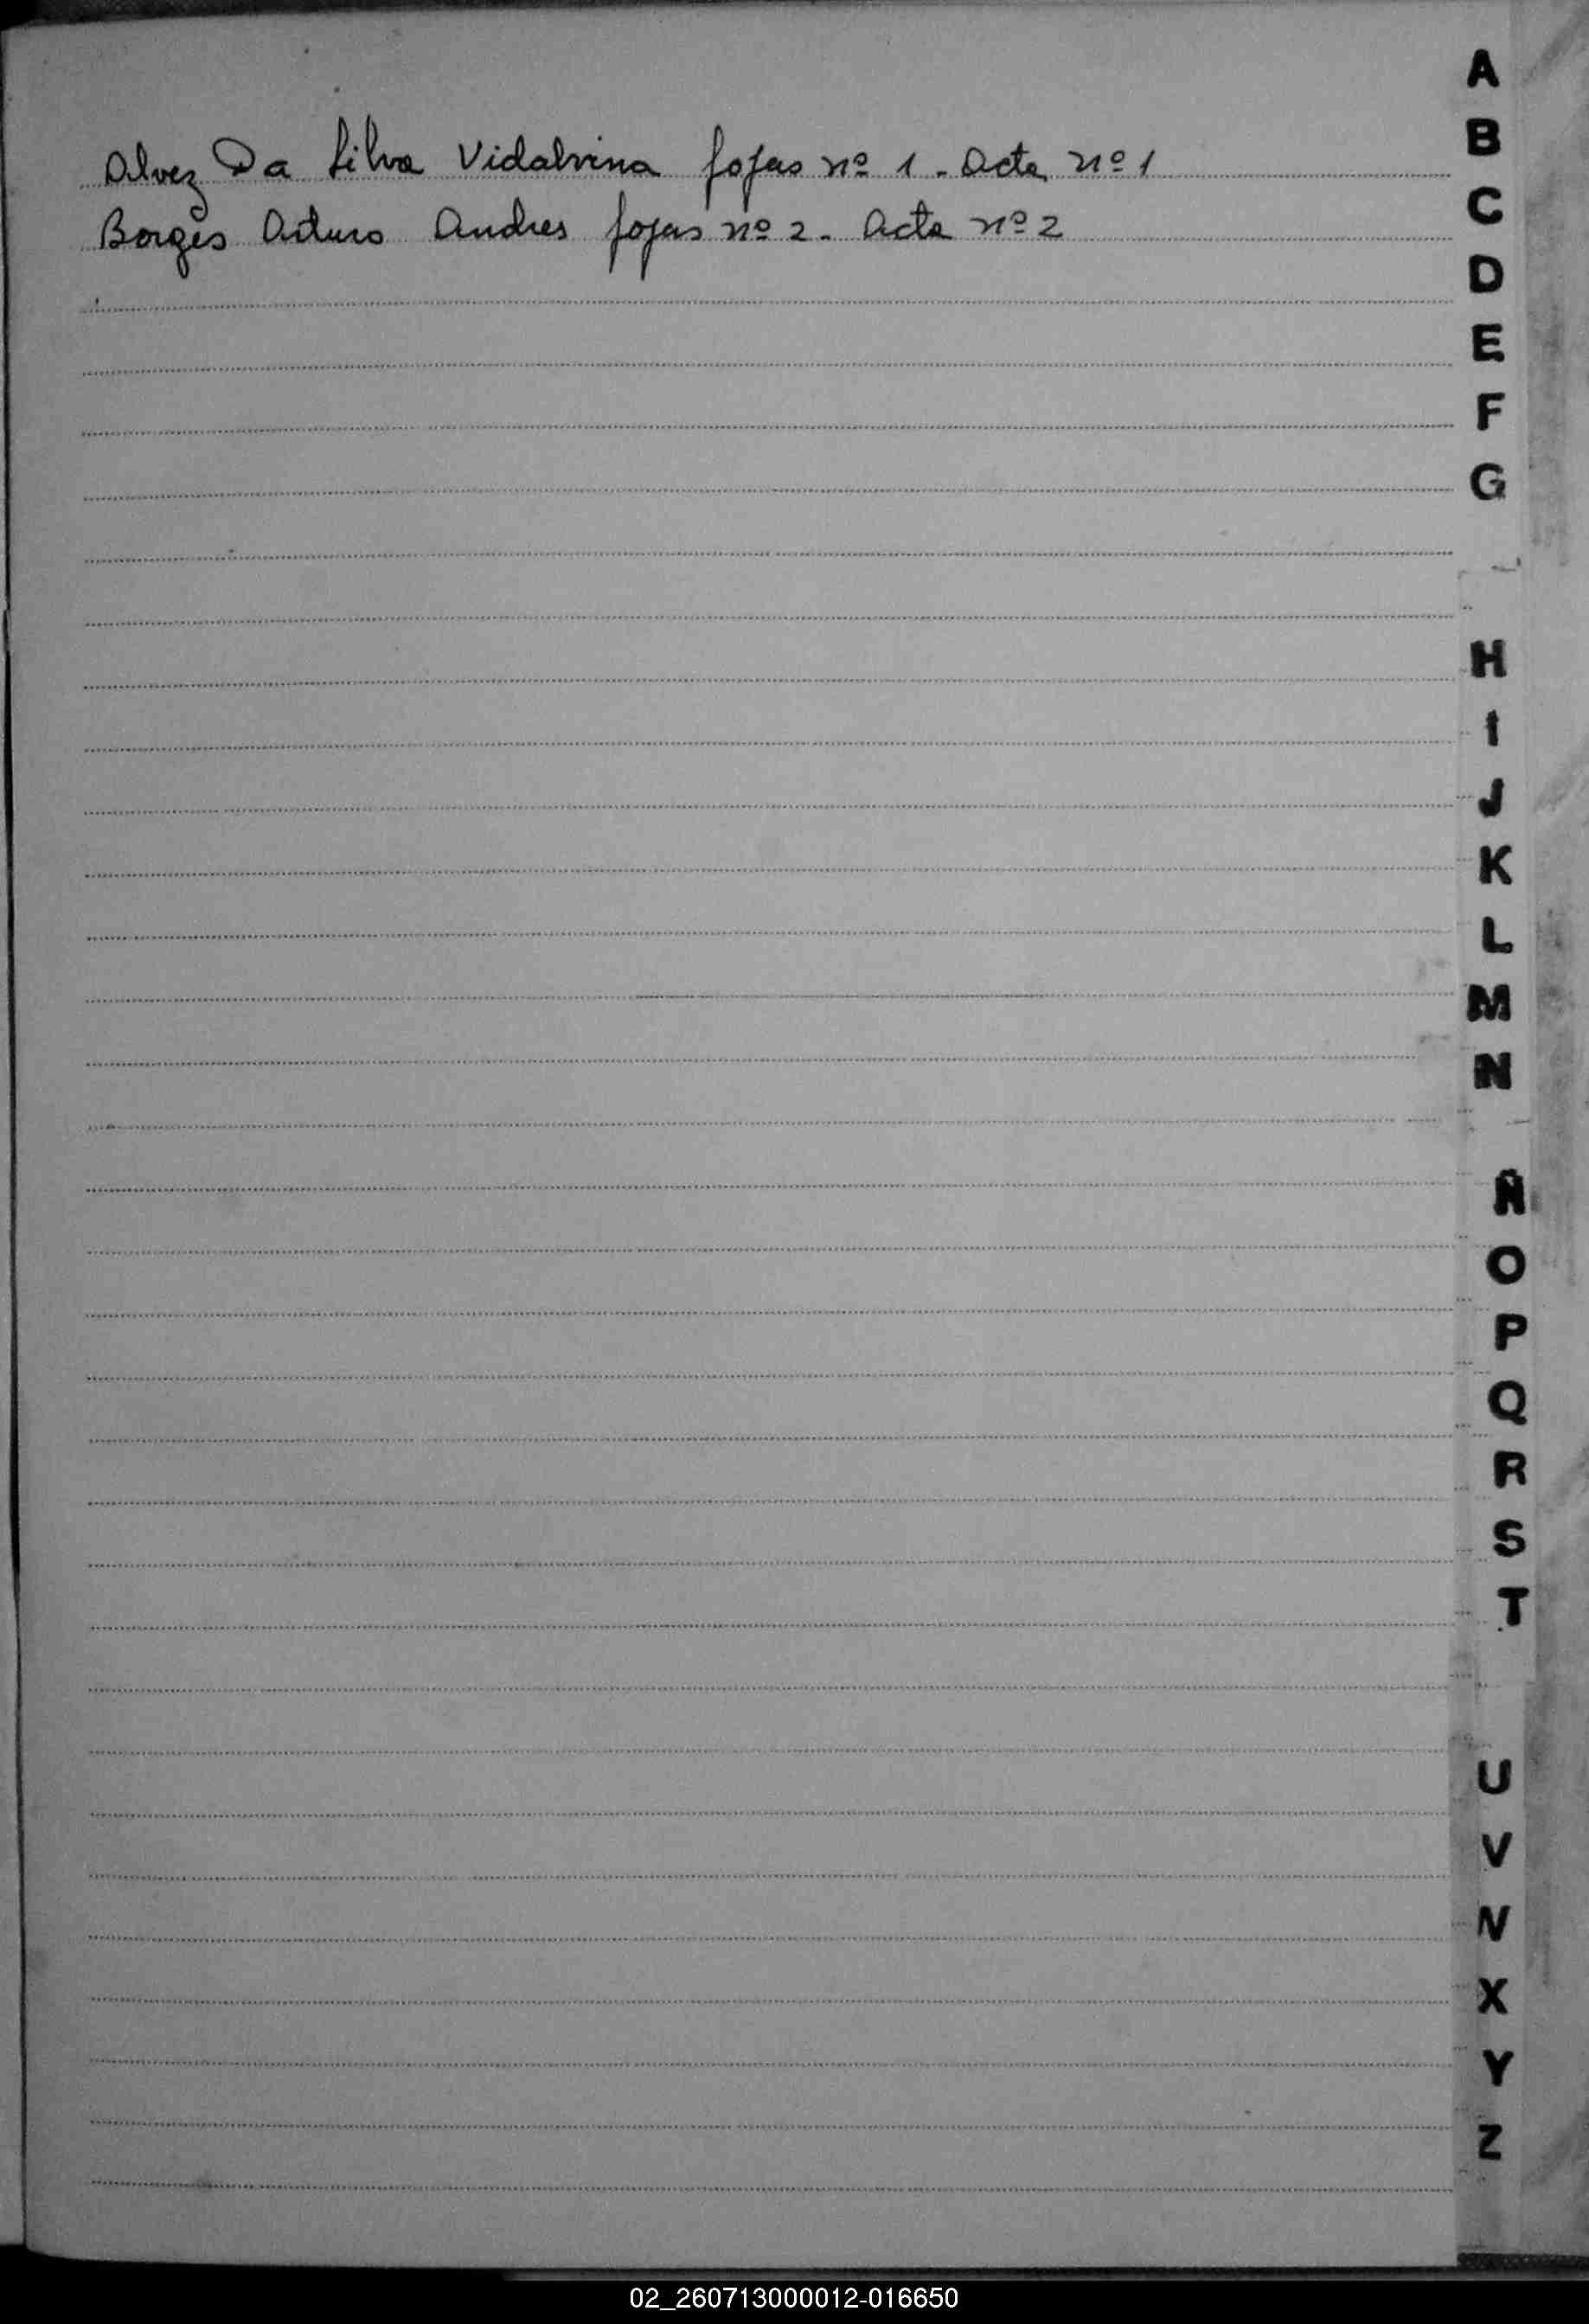 Alvez Da Silva Vidalvina fojas nº 1 - Acta nº 1
Borges Arturo Andres fojas nº 2 - Acta nº 2
A
B
C
D
E
F
G
H
I
J
K
L
M
N
Ñ
O
P
Q
R
S
T
U
V
X
Y
Z
02_260713000012-016650